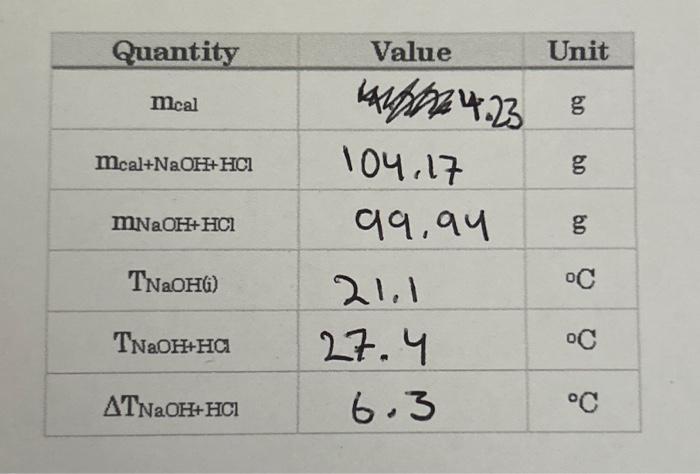 Quantity Value Unit
mcal 4.23 g
mcal+NaOH+HCl 104.17 g
mNaOH+HCl 99.94 g
TNaOH(i) 21.1 °C
TNaOH+HCl 27.4 °C
ΔTNaOH+HCl 6.3 °C